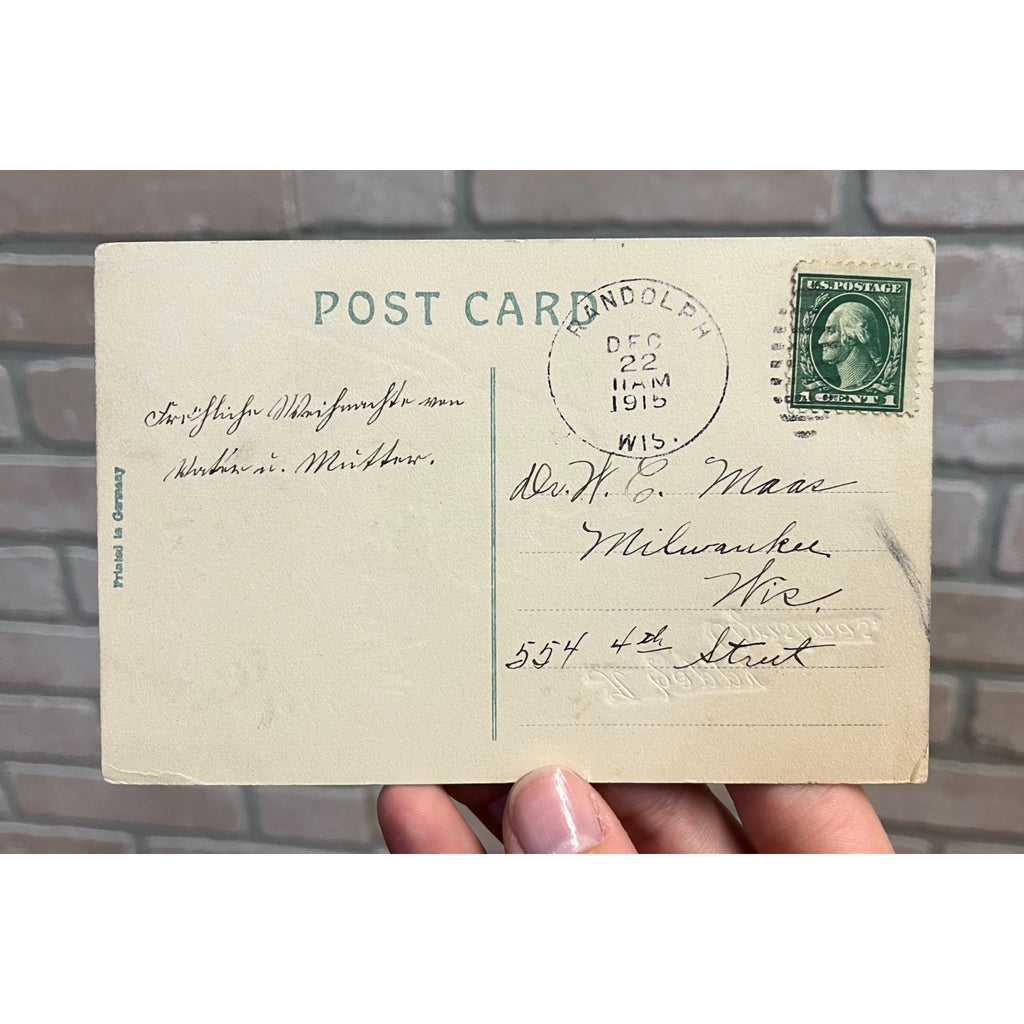 POST CARD
RANDOLPH
DEC
22
11 AM
1915
WIS.
U.S. POSTAGE
1 CENT 1
Fröhliche Weihnachte von
Vater u. Mutter.
Printed in Germany
Dr. W. E. Maas
Milwaukee
Wis.
554 4th Street
A happy
Christmas